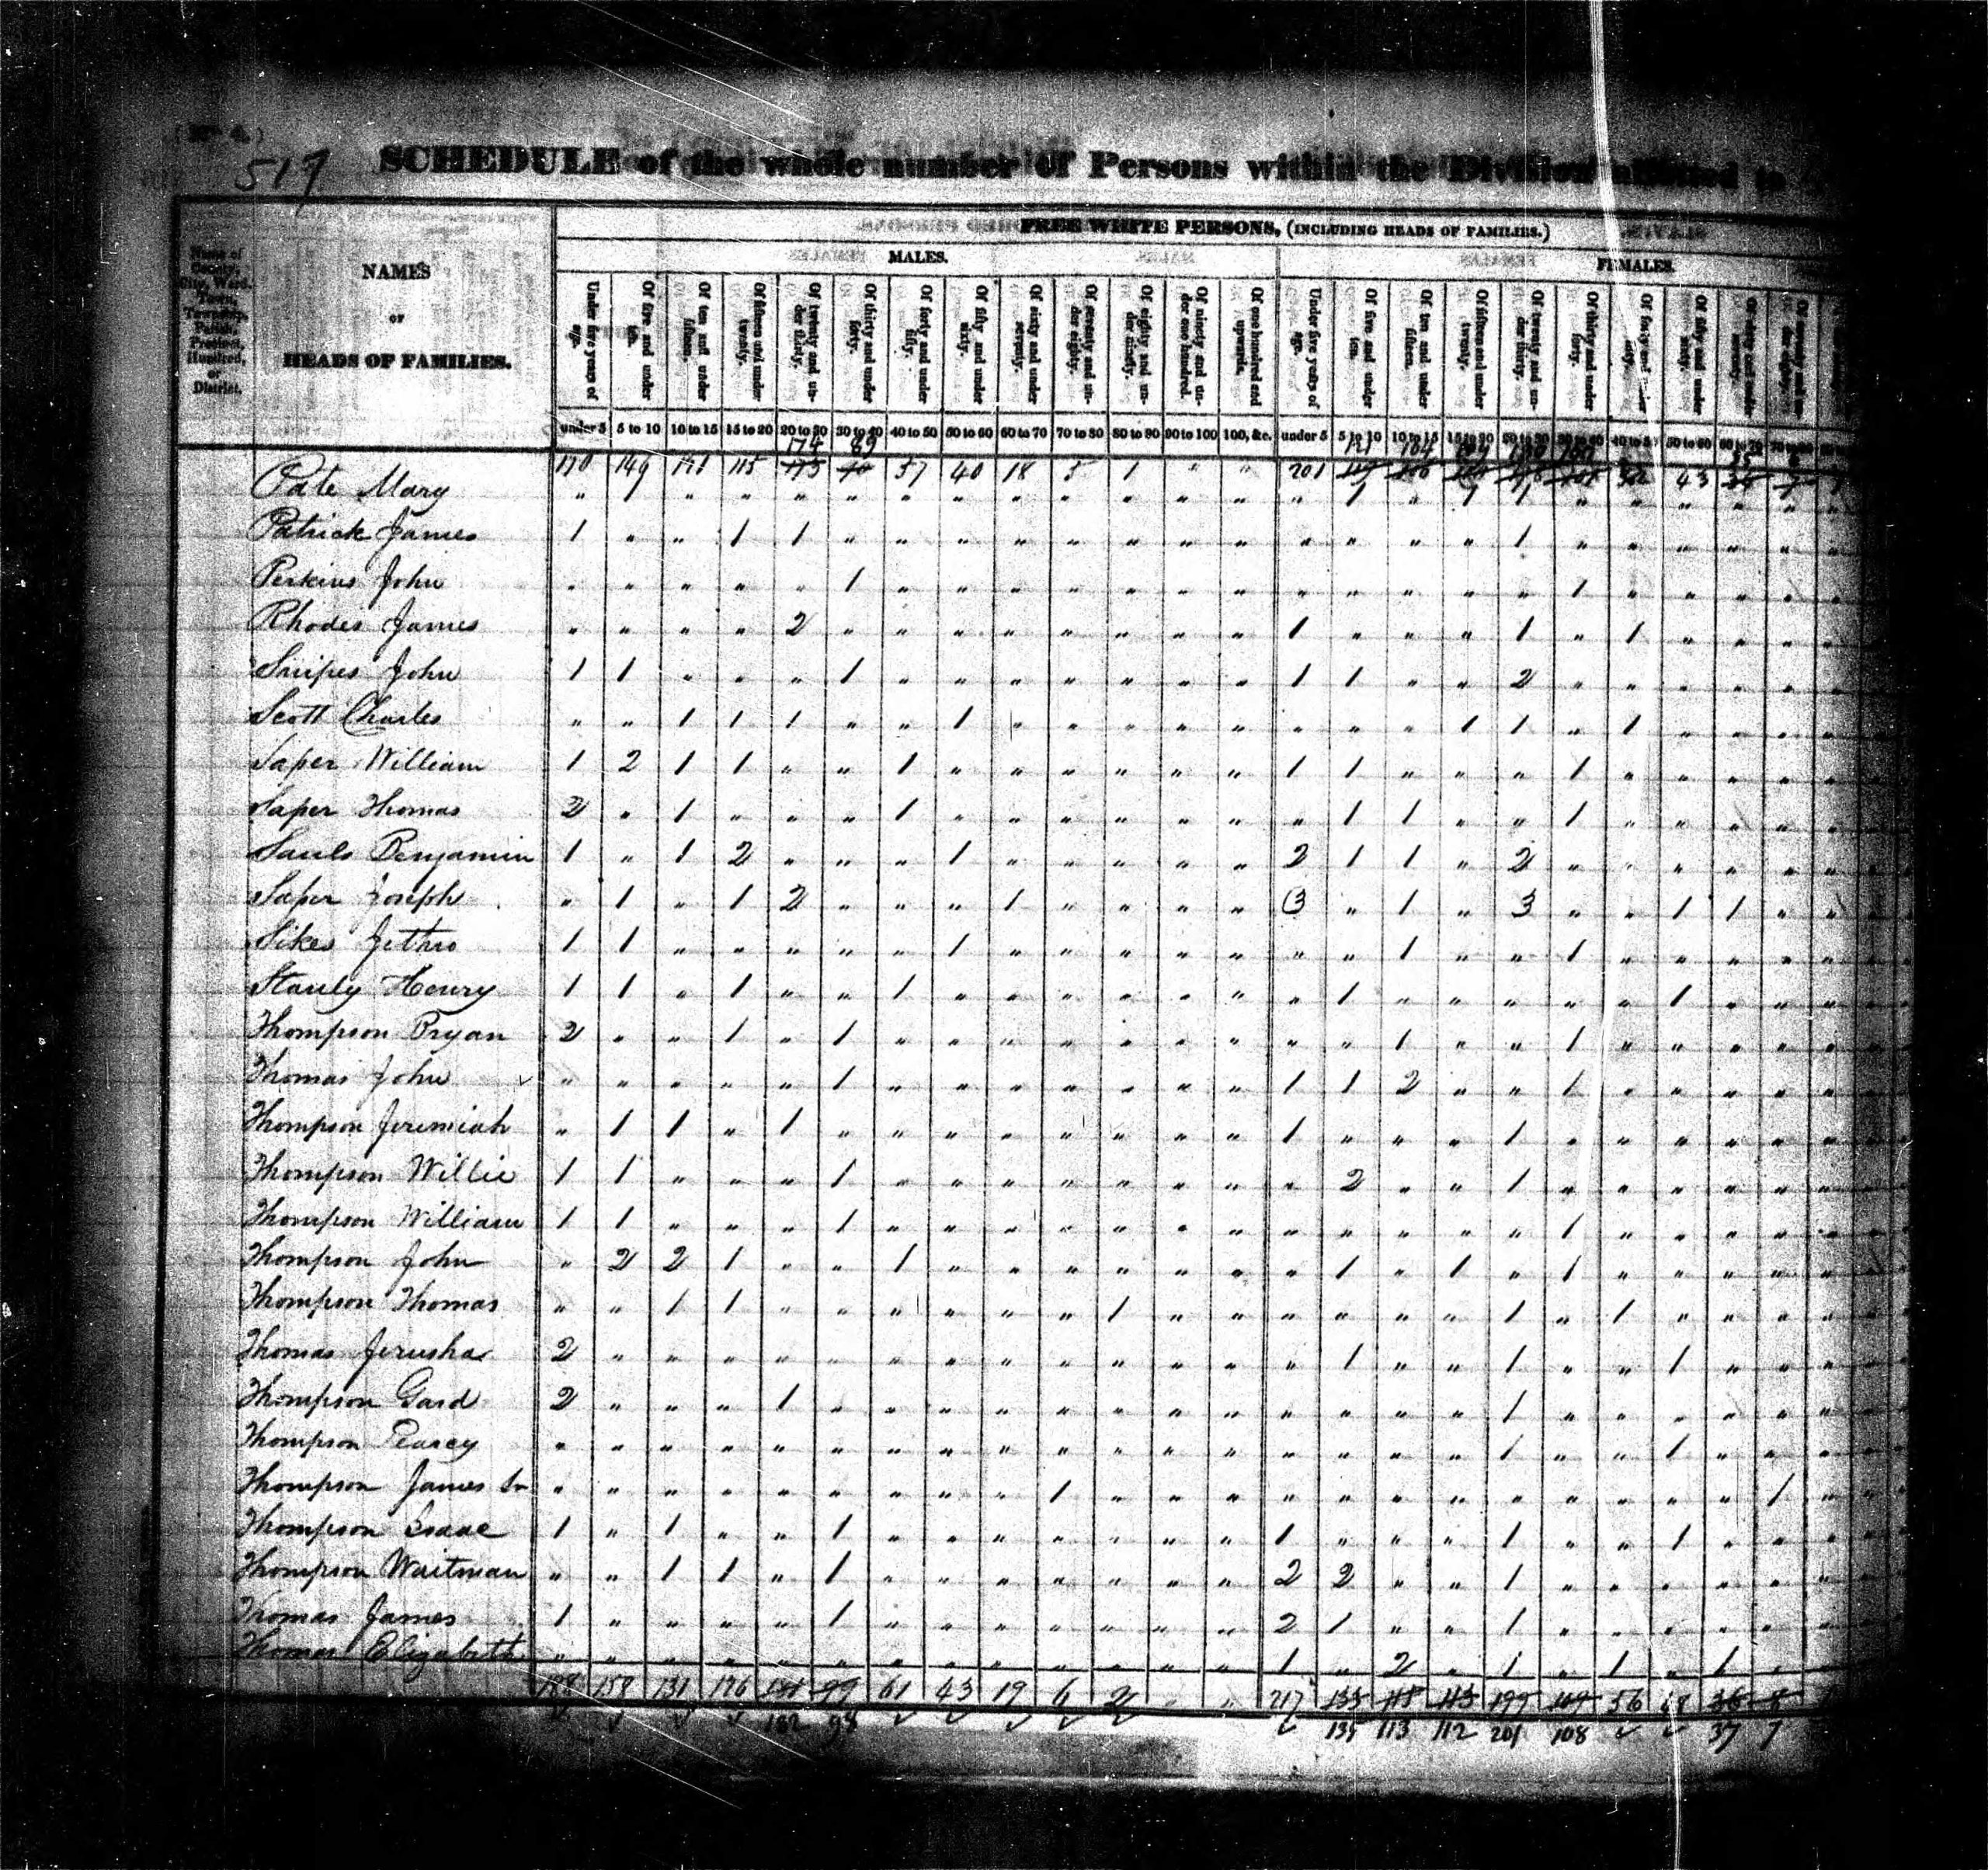 517
SCHEDULE of the whole number of Persons within the Division allotted to
FREE WHITE PERSONS, (INCLUDING HEADS OF FAMILIES.)
MALES. FEMALES.
Name of County, City, Ward, Town, Township, Parish, Precinct, Hundred, or District.
NAMES
OF
HEADS OF FAMILIES.
Under five years of age. Of five and under ten. Of ten and under fifteen. Of fifteen and under twenty. Of twenty and under thirty. Of thirty and under forty. Of forty and under fifty. Of fifty and under sixty. Of sixty and under seventy. Of seventy and under eighty. Of eighty and under ninety. Of ninety and under one hundred. Of one hundred and upwards. Under five years of age. Of five and under ten. Of ten and under fifteen. Of fifteen and under twenty. Of twenty and under thirty. Of thirty and under forty. Of forty and under fifty. Of fifty and under sixty.
under 5 5 to 10 10 to 15 15 to 20 20 to 30 30 to 40 40 to 50 50 to 60 60 to 70 70 to 80 80 to 90 90 to 100 100, &c. under 5 5 to 10 10 to 15 15 to 20 20 to 30 30 to 40 40 to 50 50 to 60 60 to 70
174 89 121 104
170 149 115 57 40 18 5 1 " " 201 43
Pate Mary " 1 " " " " " " " " " " " " 1 " 1 1 " " " " "
Patrick James 1 " " 1 1 " " " " " " " " " " " " 1 " " " " "
Perkins John " " " " " 1 " " " " " " " " " " " " 1 " " " "
Rhodes James " " " " 2 " " " " " " " " 1 " " " 1 " 1 " " "
Snipes John 1 1 " " " 1 " " " " " " " 1 1 " " 2 " " " " "
Scott Charles " " 1 1 1 " " 1 " " " " " " " " 1 1 " 1 " " "
Saper William 1 2 1 1 " " 1 " " " " " " 1 1 " " " 1 " " " "
Saper Thomas 2 " 1 " " " 1 " " " " " " " 1 1 " " 1 " " " "
Sauls Benjamin 1 " 1 2 " " " 1 " " " " " 2 1 1 " 2 " " " " "
Saper Joseph " 1 " 1 2 " " " 1 " " " " 3 " 1 " 3 " " 1 1 "
Sikes Jethro 1 1 " " " " " 1 " " " " " " " 1 " " 1 " " " "
Stanly Henry 1 1 " 1 " " 1 " " " " " " " 1 " " " " " 1 " "
Thompson Bryan 2 " " 1 " 1 " " " " " " " " " 1 " " 1 " " " "
Thomas John " " " " " 1 " " " " " " " 1 1 2 " " 1 " " " "
Thompson Jeremiah " 1 1 " 1 " " " " " " " " 1 " " " 1 " " " " "
Thompson Willie 1 1 " " " 1 " " " " " " " " 2 " " 1 " " " " "
Thompson William 1 1 " " " 1 " " " " " " " " " " " " 1 " " " "
Thompson John " 2 2 1 " " 1 " " " " " " " 1 " 1 " 1 " " " "
Thompson Thomas " " 1 1 " " " " " " 1 " " " " " " 1 " 1 " " "
Thomas Jerusha 2 " " " " " " " " " " " " " 1 " " 1 " " 1 " "
Thompson Gard 2 " " " 1 " " " " " " " " " " " " 1 " " " " "
Thompson Pearcy " " " " " " " " " " " " " " " " " 1 " " 1 " "
Thompson James Sr " " " " " " " " " 1 " " " " " " " " " " " " 1
Thompson Isaac 1 " 1 " " 1 " " " " " " " 1 " " " 1 " " 1 " "
Thompson Waitman " " 1 1 " 1 " " " " " " " 2 2 " " 1 " " " " "
Thomas James 1 " " " " 1 " " " " " " " 2 1 " " 1 " " " " "
Thomas Elizabeth " " " " " " " " " " " " " 1 " 2 " 1 " 1 " 1 "
188 158 131 126 99 61 43 19 6 2 " " 217 135 115 113 199 109 56 48 36 8
182 98 135 113 112 201 108 37 7